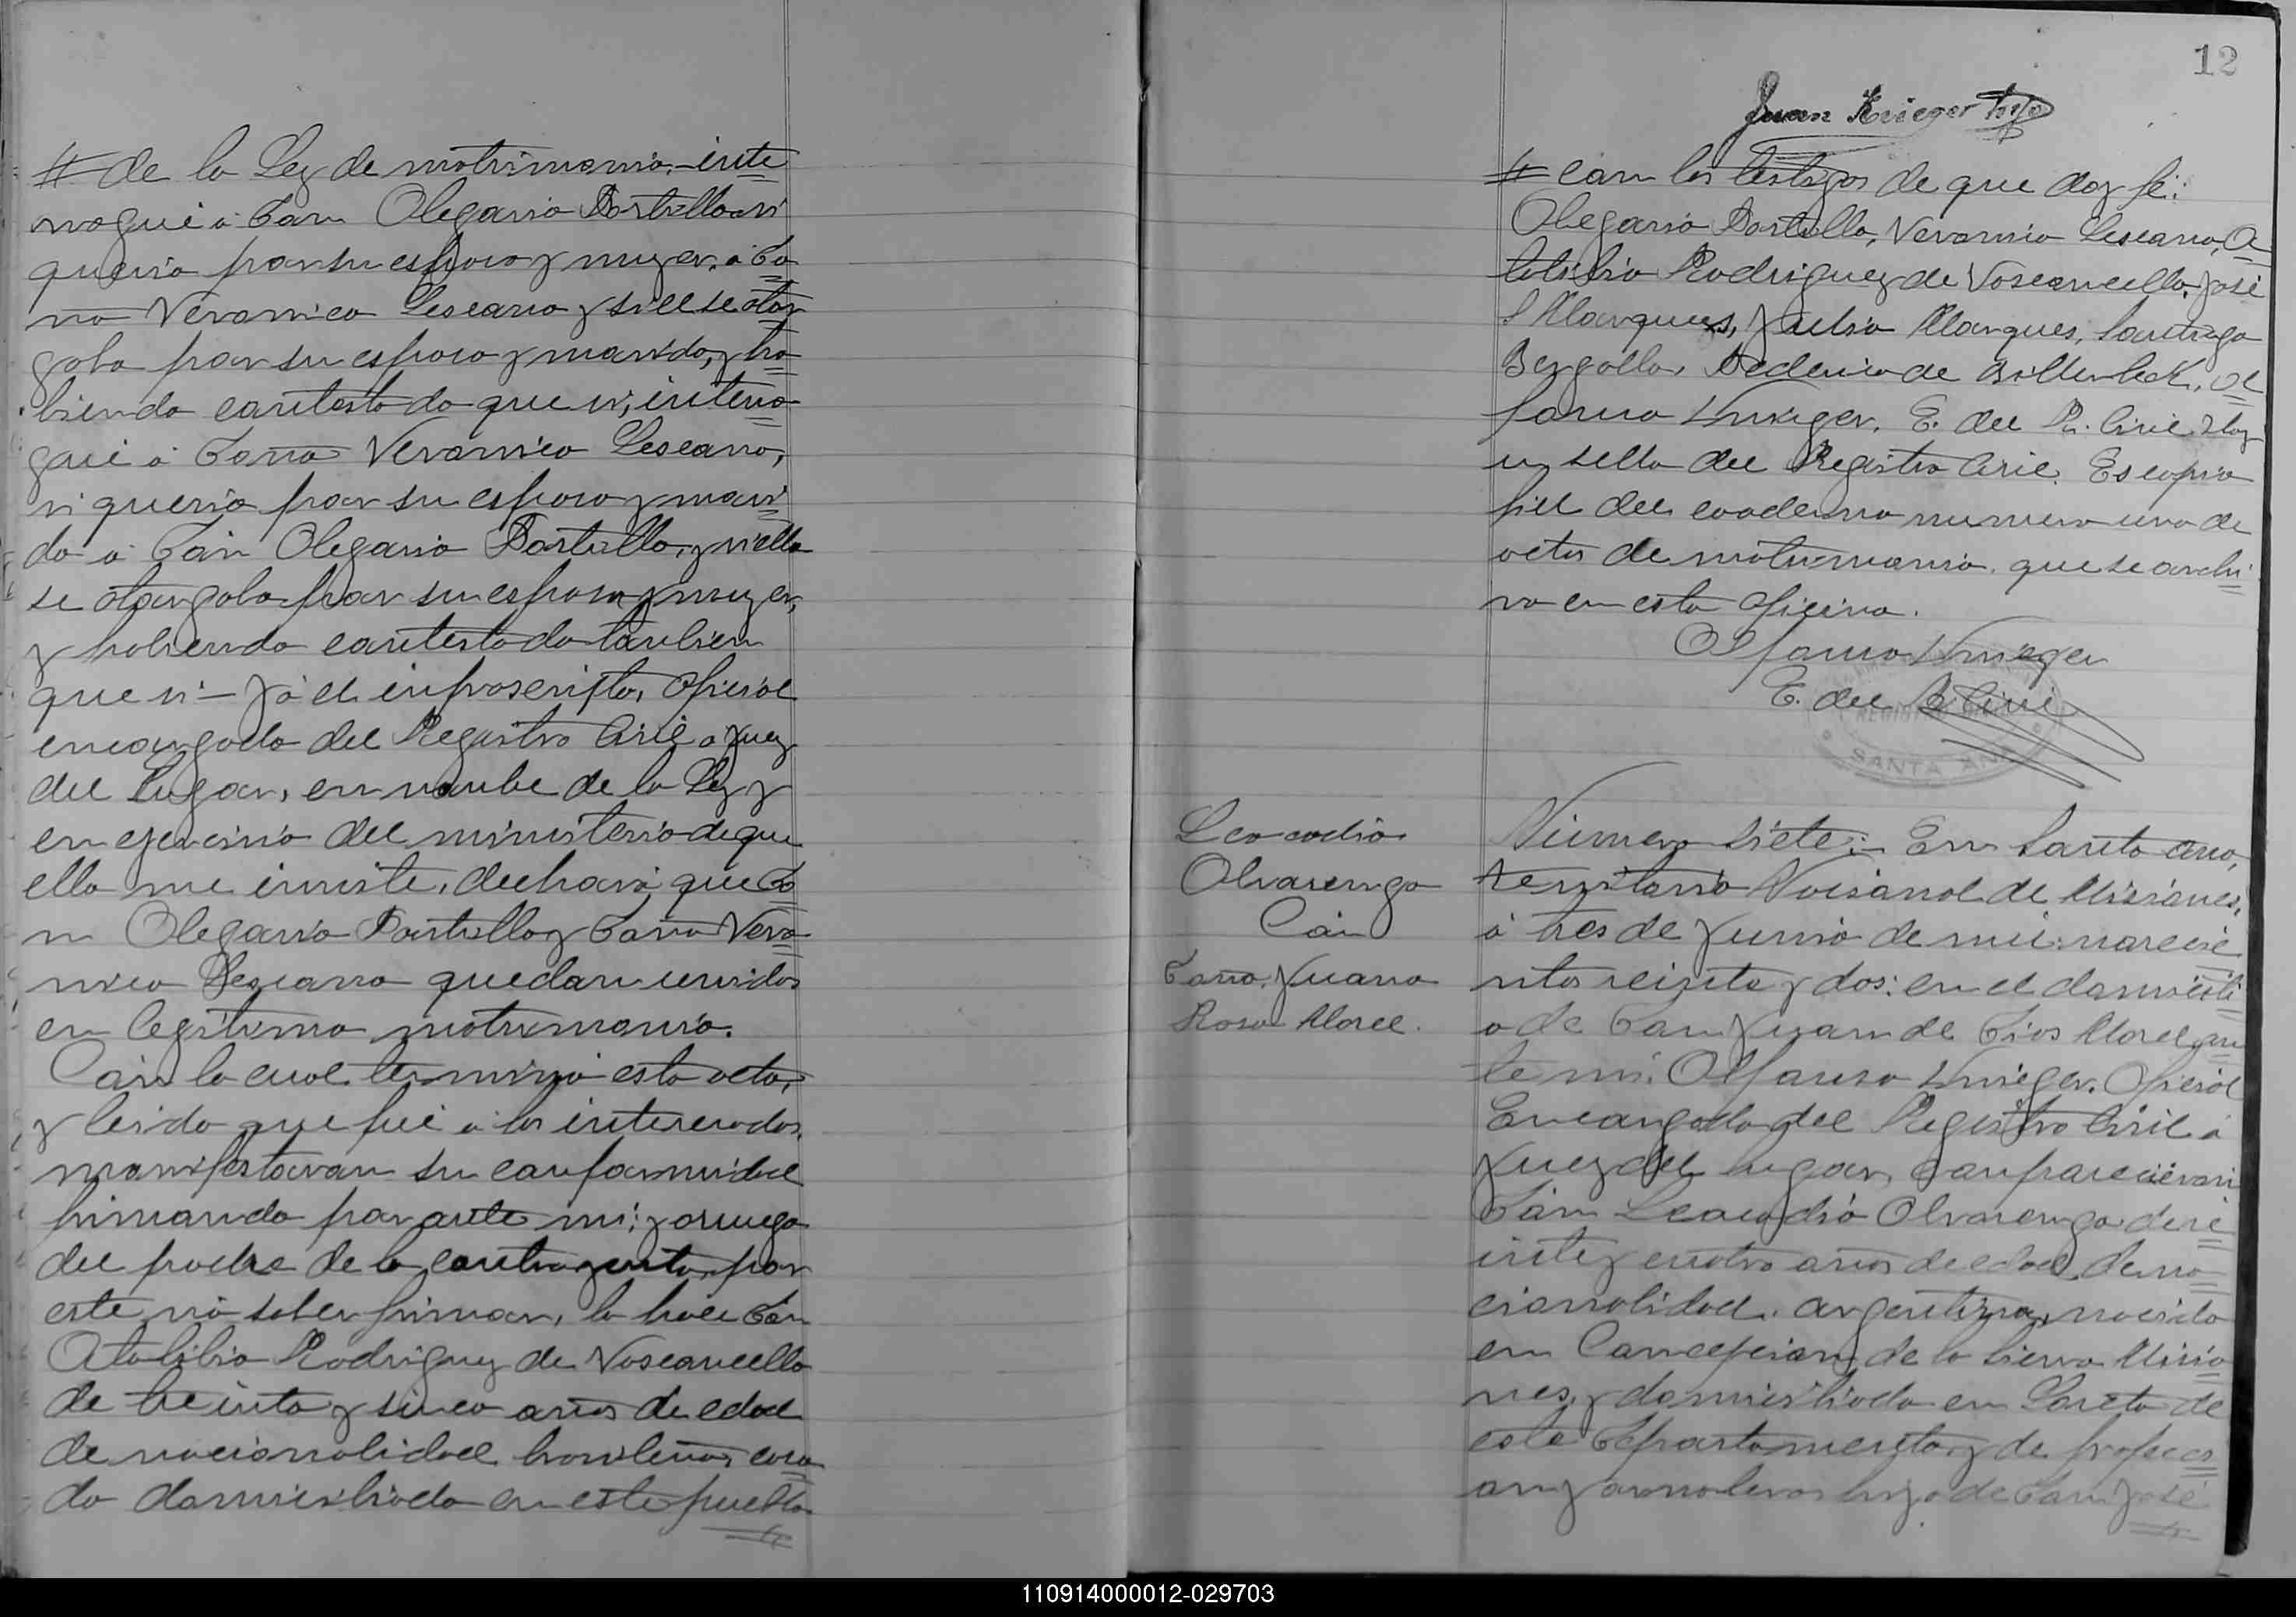 # de la Ley de matrimonio, inte
rrogué a Don Olegario Portillo si
queria por su esposa y mujer, a Do
ña Veronica Lescano y si el se otor
gaba por su esposo y marido, y ha
biendo contestado que si, interro
gué a Doña Veronica Lescano,
si queria por su esposo y mari
do a Don Olegario Portillo, y si ella
se otorgaba por su esposa y mujer,
y habiendo contestado tambien
que si — yo el infrascripto, Oficial
encargado del Registro Civil o Juez
del Lugar, en nombre de la Ley y
en ejercicio del ministerio de que
ella me inviste, declaro, que Do
n Olegario Portillo y Doña Vero
nica Lescano quedan unidos
en legitimo matrimonio.
Con lo cual termino esta acta,
y leida que fué a los interesados,
manifestaron su conformidad
firmando por ante mi; y a ruego
del padre de la contrayente, por
este no saber firmar, lo hace Don
Atalibio Rodriguez de Vasconcello
de treinta y sinco años de edad
de nacionalidad brasilera, casa
do domiciliado en este pueblo
#
12
Juan Krieger hijo
# con los testigos de que doy fé:
Olegario Portillo, Veronica Lescano, A
talibio Rodriguez de Vasconcello, José
S Marques, Julio Marques, Santiago
Federico de Billerbeck, Al
fonso Krieger, E. del R. Civil. Hay
un sello del Registro Civil. Es copia
fiel del cuaderno numero uno de
actas de matrimonio, que se archi
va en esta oficina.
Alfonso Krieger
E. del R. Civil
REGISTRO CIVIL
SANTA ANA
Leocadio
Alvarenga
Con
Doña Juana
Rosa Morel.
Número siete: En Santa Ana,
territorio Nacional de Misiones,
a tres de Junio de mil novecie
ntos veinte y dos: en el domicili
o de Don Juan de Dios Morel, an
te mi, Alfonso Krieger, Oficial
Encargado del Registro Civil o
Juez del lugar, comparecieron
Don Leocadio Alvarenga de ve
inte y cuatro años de edad, de na
cionalidad argentina, nacido
en Concepcion de la Sierra Misio
nes, y domiciliado en Loreto de
este Departamento, y de profeci
on jornalero hijo de Don José
#
110914000012-029703